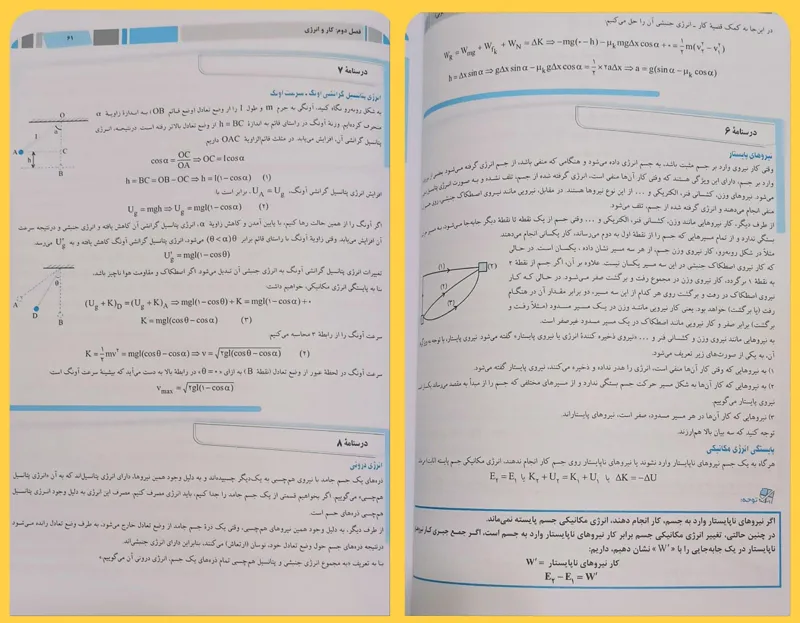 فصل دوم: کار و انرژی
۶۱
درسنامهٔ ۷
انرژی پتانسیل گرانشی آونگ ـ سرعت آونگ
به شکل روبه‌رو نگاه کنید. آونگی به جرم m و طول l را از وضع تعادل (وضع قائم OB) به اندازهٔ زاویهٔ α
منحرف کرده‌ایم. وزنهٔ آونگ در راستای قائم به اندازهٔ h = BC از وضع تعادل بالاتر رفته است. درنتیجه، انرژی
پتانسیل گرانشی آن، افزایش می‌یابد. در مثلث قائم‌الزاویهٔ OAC داریم:
cosα = OC/OA ⇒ OC = l cosα
h = BC = OB − OC ⇒ h = l(۱ − cosα) (۱)
افزایش انرژی پتانسیل گرانشی آونگ، U_A = U_g، برابر است با
U_g = mgh ⇒ U_g = mgl(۱ − cosα) (۲)
اگر آونگ را از همین حالت رها کنیم، با پایین آمدن و کاهش زاویهٔ α، انرژی پتانسیل گرانشی آن کاهش یافته و انرژی جنبشی و درنتیجه سرعت
آن افزایش می‌یابد. وقتی زاویهٔ آونگ با راستای قائم برابر θ (θ < α) می‌شود، انرژی پتانسیل گرانشی آونگ کاهش یافته و به U′_g می‌رسد.
U′_g = mgl(۱ − cosθ)
تغییرات انرژی پتانسیل گرانشی آونگ به انرژی جنبشی آن تبدیل می‌شود. اگر اصطکاک و مقاومت هوا ناچیز باشد،
بنا به پایستگی انرژی مکانیکی، خواهیم داشت:
(U_g + K)_D = (U_g + K)_A ⇒ mgl(۱ − cosθ) + K = mgl(۱ − cosα) + ۰
K = mgl(cosθ − cosα) (۳)
سرعت آونگ را از رابطهٔ ۳ محاسبه می‌کنیم.
K = ۱/۲ mv² = mgl(cosθ − cosα) ⇒ v = √۲gl(cosθ − cosα) (۴)
سرعت آونگ در لحظهٔ عبور از وضع تعادل (نقطهٔ B) به ازای «θ = ۰» در رابطهٔ بالا به دست می‌آید که بیشینهٔ سرعت آونگ است.
v_max = √۲gl(۱ − cosα)
O
α
l
A
C
h
B
θ
A
D
B
درسنامهٔ ۸
انرژی درونی
ذره‌های یک جسم جامد با نیروی هم‌چسبی به یک‌دیگر چسبیده‌اند و به دلیل وجود همین نیروها، دارای انرژی پتانسیل‌اند که به آن «انرژی پتانسیل
هم‌چسبی» می‌گوییم. اگر بخواهیم قسمتی از یک جسم جامد را جدا کنیم، باید انرژی مصرف کنیم. مصرف این انرژی به دلیل وجود انرژی پتانسیل
هم‌چسبی ذره‌های جسم است.
از طرف دیگر، به دلیل وجود همین نیروهای هم‌چسبی، وقتی یک ذرهٔ جسم جامد از وضع تعادل خارج می‌شود، به طرف وضع تعادل رانده می‌شود
درنتیجه ذره‌های جسم حول وضع تعادل خود، نوسان (ارتعاش) می‌کنند، بنابراین دارای انرژی جنبشی‌اند.
بنا به تعریف «به مجموع انرژی جنبشی و پتانسیل هم‌چسبی تمام ذره‌های یک جسم، انرژی درونی آن می‌گوییم»
در این‌جا به کمک قضیهٔ کار ـ انرژی جنبشی آن را حل می‌کنیم:
W_g = W_mg + W_fk + W_N = ΔK ⇒ −mg(۰ − h) − μ_k mgΔx cosα + ۰ = ۱/۲ m(v₂² − v₁²)
h = Δx sinα ⇒ gΔx sinα − μ_k gΔx cosα = ۱/۲ × ۲aΔx ⇒ a = g(sinα − μ_k cosα)
درسنامهٔ ۶
نیروهای پایستار
وقتی کار نیروی وارد بر جسم مثبت باشد، به جسم انرژی داده می‌شود و هنگامی که منفی باشد، از جسم انرژی گرفته می‌شود.
وارد بر جسم، دارای این ویژگی هستند که وقتی کار آن‌ها منفی است، انرژی گرفته شده از جسم، تلف نشده و به صورت انرژی
می‌شود. نیروهای وزن، کشسانی فنر، الکتریکی و ... از این نوع نیروها هستند. در مقابل، نیرویی مانند نیروی اصطکاک جنبشی،
منفی انجام می‌دهند و انرژی گرفته شده از جسم، تلف می‌شود.
از طرف دیگر، کار نیروهایی مانند وزن، کشسانی فنر، الکتریکی و ... وقتی جسم از یک نقطه تا نقطهٔ دیگر جابه‌جا می‌شود، به
بستگی ندارد و از تمام مسیرهایی که جسم را از نقطهٔ اول به دوم می‌رساند، کار یکسانی انجام می‌دهند.
مثلاً در شکل روبه‌رو، کار نیروی وزن جسم، از هر سه مسیر نشان داده ، یکسان است. در حالی
که کار نیروی اصطکاک جنبشی در این سه مسیر یکسان نیست. علاوه بر آن، اگر جسم از نقطهٔ ۲
به نقطهٔ ۱ برگردد، کار نیروی وزن در مجموع رفت و برگشت صفر می‌شود. در حالی که کار
نیروی اصطکاک در رفت و برگشت روی هر کدام از این سه مسیر، دو برابر مقدار آن در هنگام
رفت (یا برگشت) خواهد بود. یعنی کار نیرویی مانند وزن در یک مسیر مسدود (مثلاً رفت و
برگشت) برابر صفر و کار نیرویی مانند اصطکاک در یک مسیر مسدود غیرصفر است.
(۱)
(۲)
(۳)
(۲)
به نیروهایی مانند نیروی وزن و کشسانی فنر و ... «نیروی ذخیره کنندهٔ انرژی یا نیروی پایستار» گفته می‌شود. نیروی پایستار، با توجه به
آن، به یکی از صورت‌های زیر تعریف می‌شود.
۱) به نیروهایی که وقتی کار آن‌ها منفی است، انرژی را هدر نداده و ذخیره می‌کنند، نیروی پایستار گفته می‌شود.
۲) به نیروهایی که کار آن‌ها به شکل مسیر حرکت جسم بستگی ندارد و از مسیرهای مختلفی که جسم را از مبدأ به مقصد می‌رساند
نیروی پایستار می‌گوییم.
۳) نیروهایی که کار آن‌ها در هر مسیر مسدود، صفر است، نیروهای پایستاراند.
توجه کنید که سه بیان بالا هم‌ارزند.
پایستگی انرژی مکانیکی
هرگاه به یک جسم نیروهای ناپایستار وارد نشوند یا نیروهای ناپایستار روی جسم کار انجام ندهند، انرژی مکانیکی جسم پایسته
ΔK = −ΔU یا K₂ + U₂ = K₁ + U₁ یا E₂ = E₁
توجه:
اگر نیروهای ناپایستار وارد به جسم، کار انجام دهند، انرژی مکانیکی جسم پایسته نمی‌ماند.
در چنین حالتی، تغییر انرژی مکانیکی جسم برابر کار نیروهای ناپایستار وارد به جسم است، اگر جمع جبری کار
ناپایستار در یک جابه‌جایی را با «W′» نشان دهیم، داریم:
کار نیروهای ناپایستار = W′
E₂ − E₁ = W′